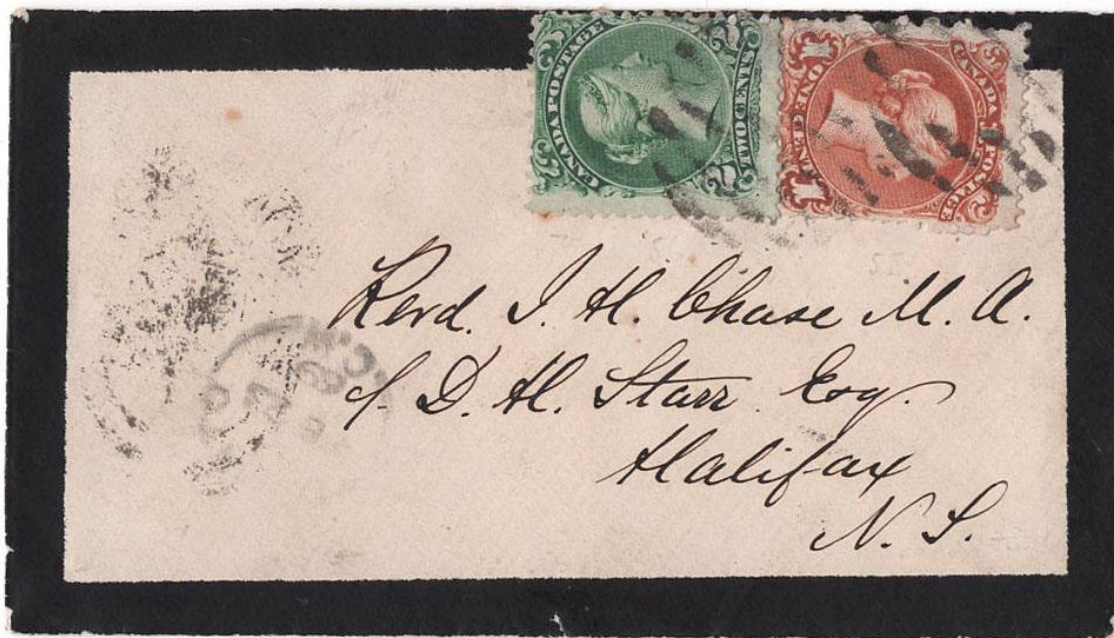 CANADA POSTAGE
TWO CENTS
CANADA POSTAGE
ONE CENT
1
1
Revd. J. H. Chase M. A.
c/ D. H. Starr Esq.
Halifax
N. S.